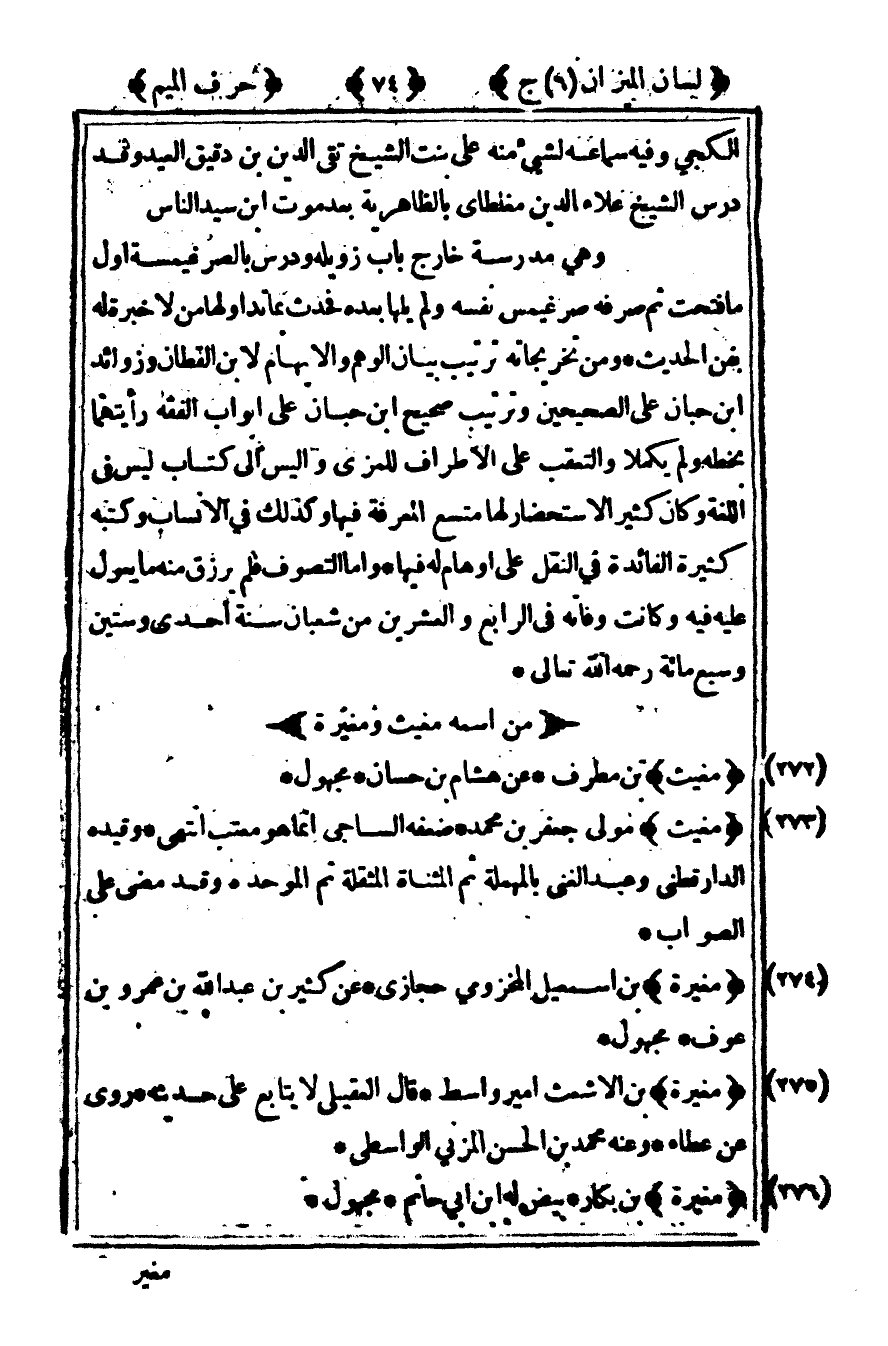 ﴿ لسان الميزان(٦)ج ﴾ ﴿ ٧٤ ﴾ ﴿ حرف الميم ﴾
الكجي وفيه سماعه لشيء منه على بنت الشيخ تقى الدين بن دقيق العيد وقد
درس الشيخ علاء الدين مغلطاى بالظاهرية بعدموت ابن سيدالناس
وهي مدرسة خارج باب زويله ودرس بالصرغيمسة اول
مافتحت ثم صرفه صرغيمس نفسه ولم يلها بعده محدث بل تداولها من لا خبرة له
بفن الحديث * ومن تخريجاته ترتيب بيان الوهم والايهام لابن القطان وزوائد
ابن حبان على الصحيحين وترتيب صحيح ابن حبان على ابواب الفقه رأيتهما
بخطه ولم يكملا والتعقب على الاطراف للمزى و اليس الى كتاب ليس فى
اللغة وكان كثير الاستحضار لها متسع المعرفة فيها وكذلك في الانساب وكتبه
كثيرة الفائدة في النقل على اوهام له فيها * واما التصوف فلم يرزق منه ما يعول
عليه فيه وكانت وفاته فى الرابع والعشرين من شعبان سنة أحدى وستين
وسبع مائة رحمه الله تعالى *
﴿ من اسمه مغيث ومغيرة ﴾
(٢٧٢) ﴿ مغيث ﴾ بن مطرف * عن هشام بن حسان * مجهول *
(٢٧٣) ﴿ مغيث ﴾ مولى جعفر بن محمد * ضعفه الساجى انما هو معتب انتهى * وقيده
الدارقطنى وعبدالغنى بالمهملة ثم المثناة المثقلة ثم الموحدة * وقد مضى على
الصواب *
(٢٧٤) ﴿ مغيرة ﴾ بن اسمعيل المخزومي حجازى * عن كثير بن عبدالله بن عمرو بن
عوف * مجهول *
(٢٧٥) ﴿ مغيرة ﴾ بن الاشعث امير واسط * قال العقيلى لا يتابع على حديثه * روى
عن عطاء * وعنه محمد بن الحسن المزني الواسطى *
(٢٧٦) ﴿ مغيرة ﴾ بن بكار * بيض له ابن ابي حاتم * مجهول *
مغير